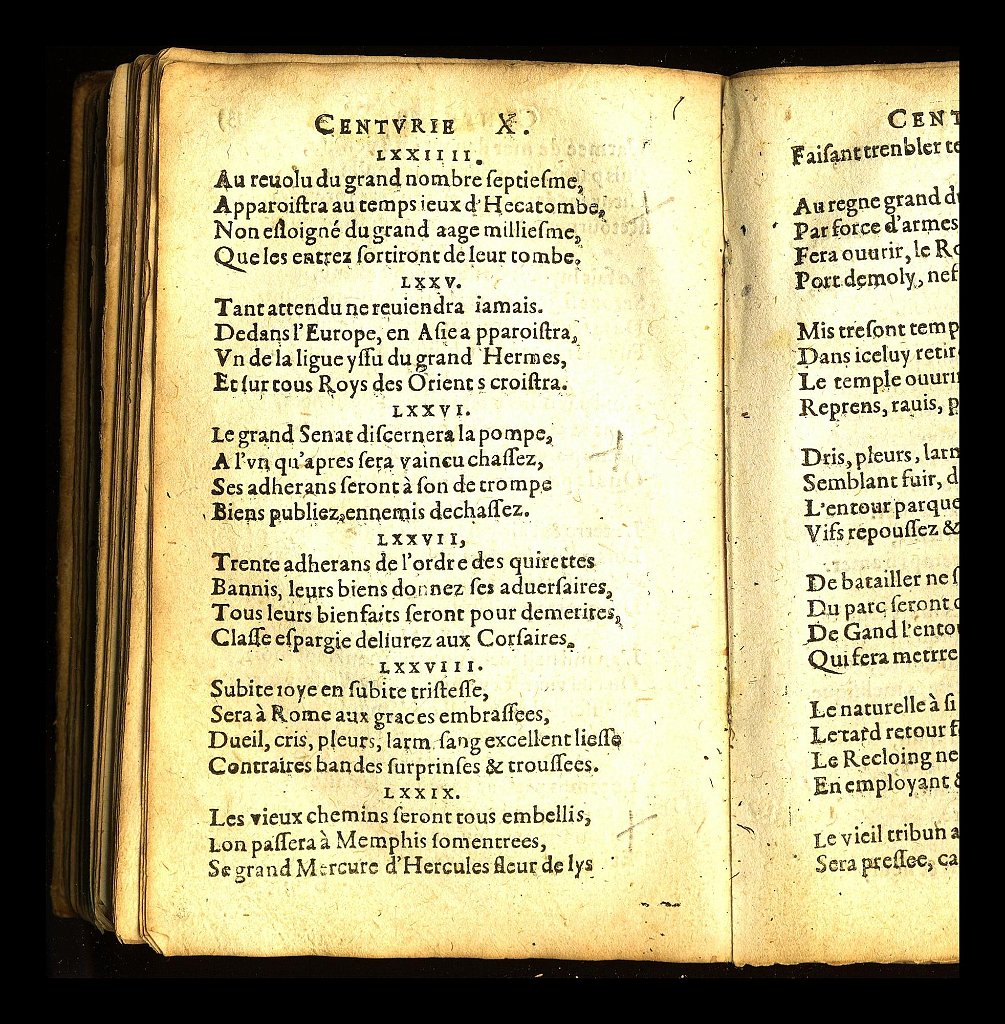 CENTVRIE X.
LXXIIII.
Au reuolu du grand nombre ſeptieſme,
Apparoiſtra au temps ieux d'Hecatombe,
Non eſloigné du grand aage millieſme,
Que les entrez ſortiront de leur tombe.
LXXV.
Tant attendu ne reuiendra iamais.
Dedans l'Europe, en Aſie apparoiſtra,
Vn de la ligue yſſu du grand Hermes,
Et ſur tous Roys des Orients croiſtra.
LXXVI.
Le grand Senat diſcernera la pompe,
A l'vn qu'apres ſera vaincu chaſſez,
Ses adherans ſeront à ſon de trompe
Biens publiez, ennemis dechaſſez.
LXXVII,
Trente adherans de l'ordre des quirettes
Bannis, leurs biens donnez ſes aduerſaires,
Tous leurs bienfaits ſeront pour demerites,
Claſſe eſpargie deliurez aux Corſaires.
LXXVIII.
Subite ioye en ſubite triſteſſe,
Sera à Rome aux graces embraſſees,
Dueil, cris, pleurs, larm. ſang excellent lieſſe
Contraires bandes ſurprinſes & trouſſees.
LXXIX.
Les vieux chemins ſeront tous embellis,
Lon paſſera à Memphis ſomentrees,
Se grand Mercure d'Hercules fleur de lys
CENT
Faiſant trenbler te
Au regne grand du
Par force d'armes
Fera ouurir, le Ro
Port demoly, nef
Mis treſont temp
Dans iceluy retir
Le temple ouurir
Reprens, rauis, p
Dris, pleurs, larm
Semblant fuir, d
L'entour parque
Vifs repouſſez &
De batailler ne ſ
Du parc ſeront
De Gand l'ento
Qui fera mettre
Le naturelle à ſi
Le tard retour f
Le Recloing ne
En employant &
Le vieil tribun a
Sera preſſee, ca